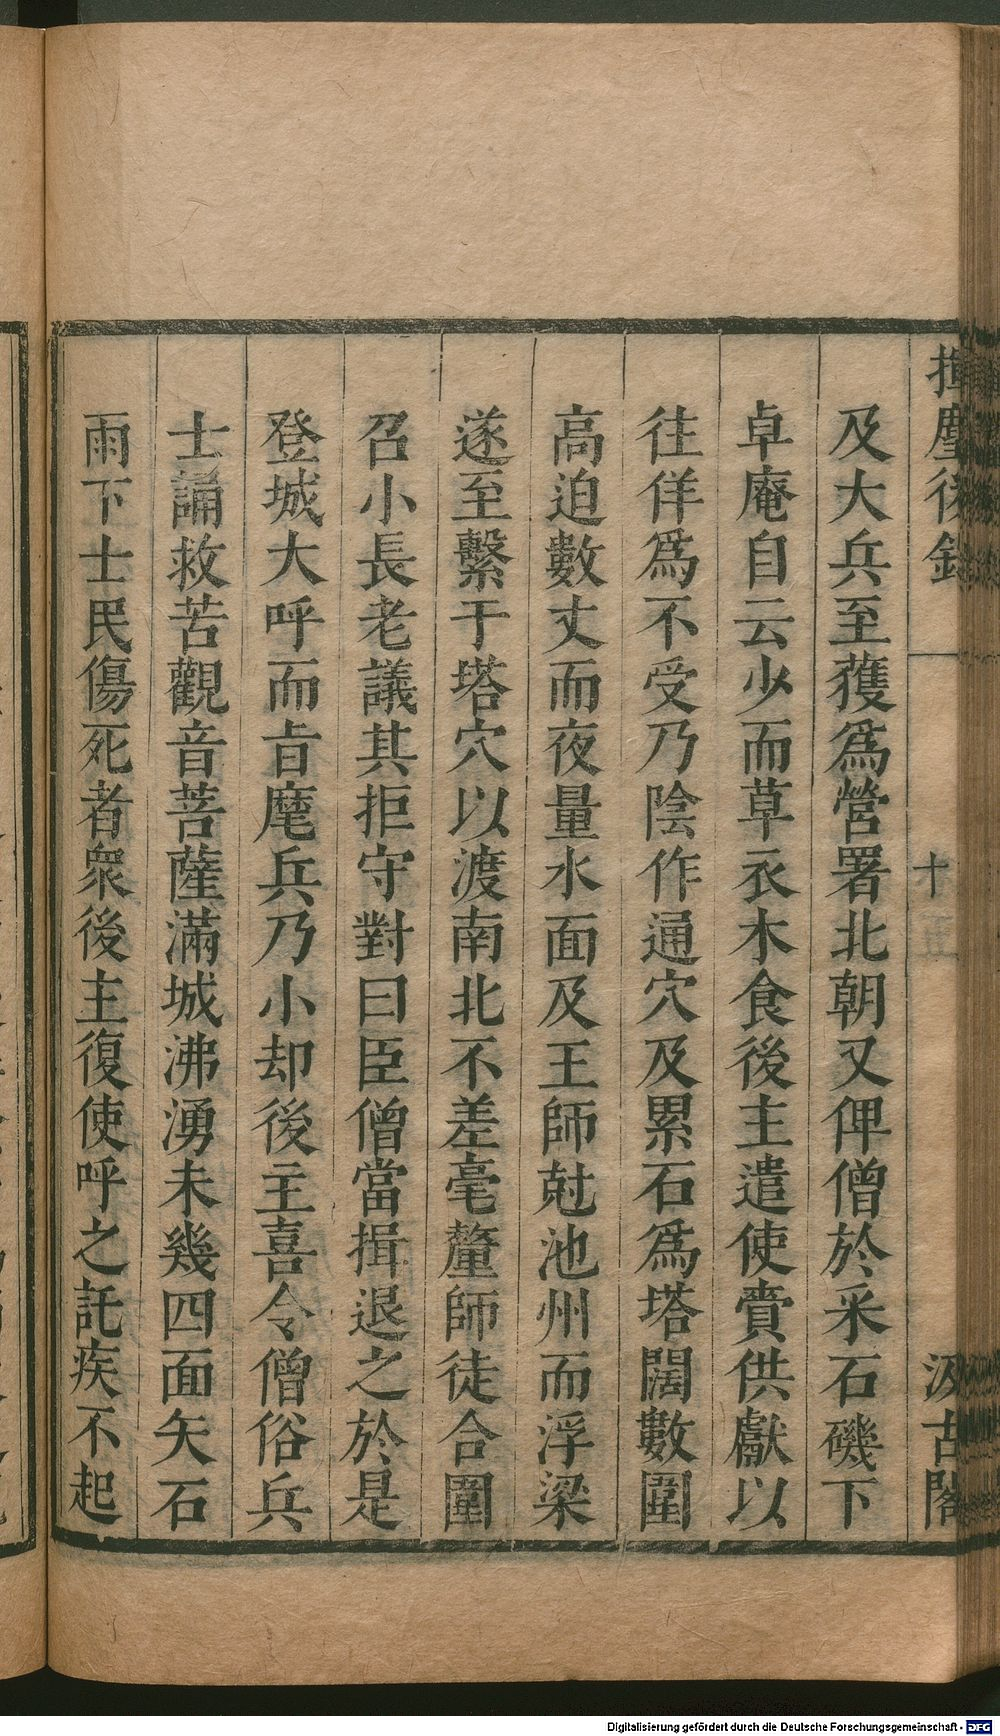 揮麈後錄
十五
汲古閣
及大兵至獲爲營署北朝又俾僧於采石磯下
卓庵自云少而草衣木食後主遣使賫供獻以
往佯爲不受乃陰作通穴及累石爲塔闊數圍
高迫數丈而夜量水面及王師尅池州而浮梁
遂至繫于塔穴以渡南北不差毫釐師徒合圍
召小長老議其拒守對曰臣僧當揖退之於是
登城大呼而旹麾兵乃小却後主喜令僧俗兵
士誦救苦觀音菩薩滿城沸湧未幾四面矢石
雨下士民傷死者衆後主復使呼之託疾不起
Digitalisierung gefördert durch die Deutsche Forschungsgemeinschaft - DFG